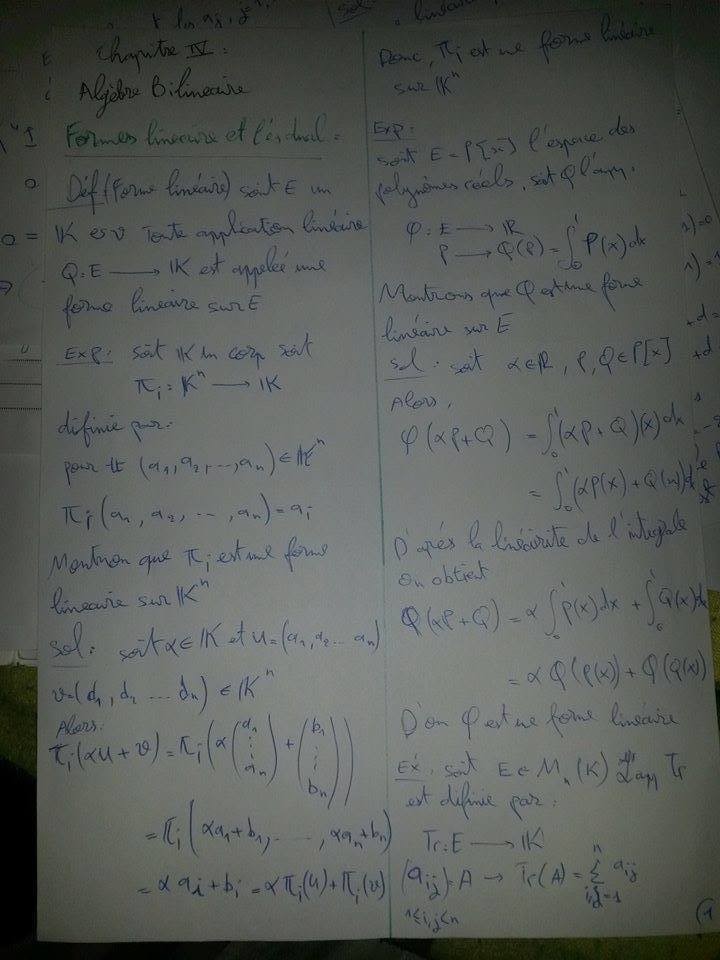 Chapitre IV :
Algèbre Bilineaire
Formes lineaire et l'es dual =
Déf (Forme linéaire) soit E un
IK esv Toute application linéaire
Q : E → IK est appelée une
forme linéaire sur E
Exp : soit IK un corp soit
π_i : IK^n → IK
difinie par :
pour tt (a_1, a_2, ..., a_n) ∈ IK^n
π_i (a_1, a_2, ..., a_n) = a_i
Montron que π_i est une forme
lineaire sur IK^n
Sol : soit α ∈ IK et u = (a_1, a_2 ... a_n)
v = (d_1, d_2 ... d_n) ∈ IK^n
Alors :
π_i (αu + v) = π_i (α (a_1 ⋮ a_n) + (b_1 ⋮ b_n))
= π_i (αa_1 + b_1, ..., αa_n + b_n)
= α a_i + b_i = α π_i(u) + π_i(v)
Donc, π_i est une forme linéaire
sur IK^n
Exp :
soit E = P[x] l'espace des
polynômes réels, soit φ l'app.
φ : E → IR
P → φ(P) = ∫_0^1 P(x) dx
Montrons que φ est une forme
linéaire sur E
Sol : soit α ∈ IR, P, Q ∈ P[x]
Alors,
φ (αP + Q) = ∫_0^1 (αP + Q)(x) dx
= ∫_0^1 (αP(x) + Q(x)) dx
D'après la linéairite de l'integrale
on obtient
φ (αP + Q) = α ∫_0^1 P(x) dx + ∫_0^1 Q(x) dx
= α φ (P(x)) + φ (Q(x))
D'on φ est une forme linéaire
Ex : soit E = M_n (K) L'app Tr
est définie par :
Tr : E → IK
(a_ij) = A → Tr(A) = Σ_{i,j=1}^n a_ij
1≤i,j<n
(1